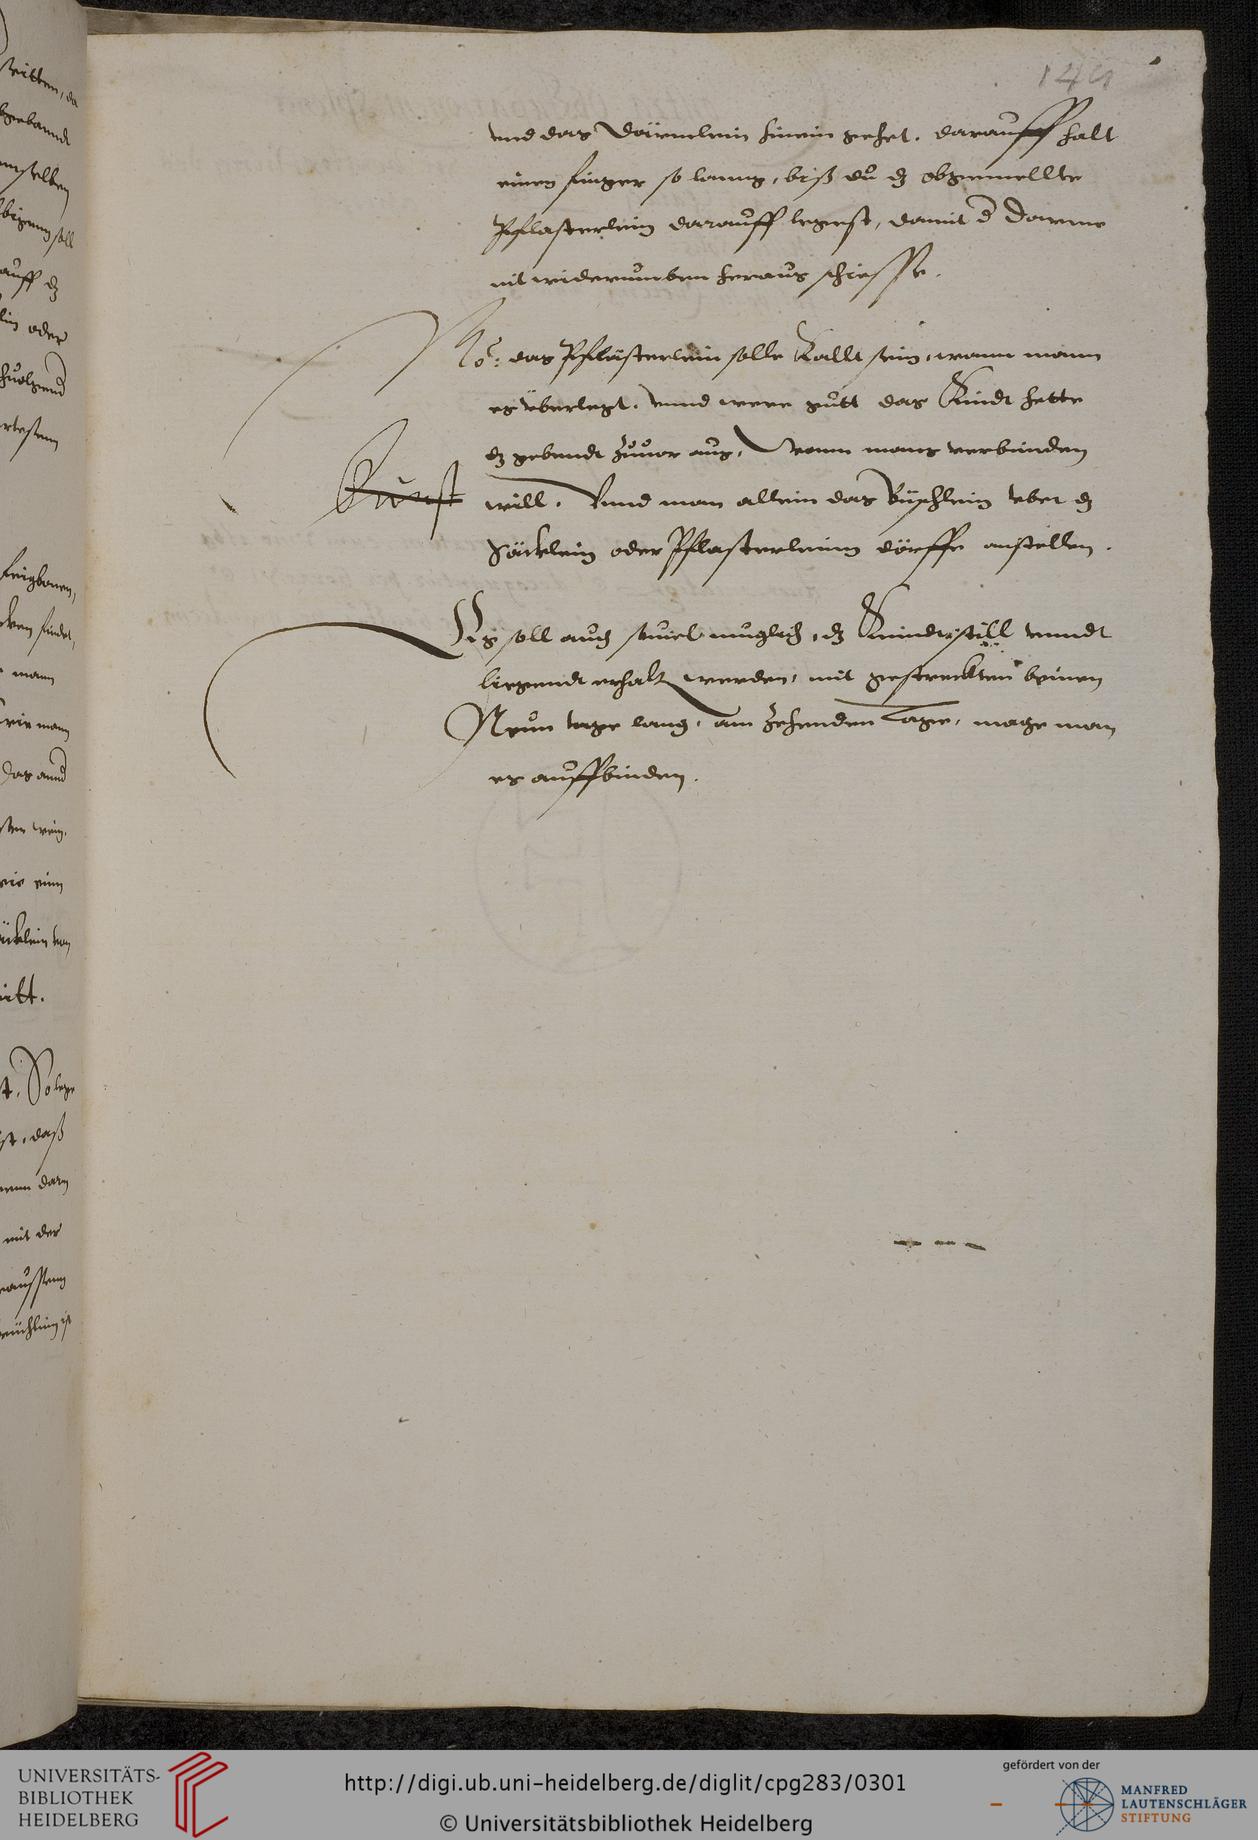 149
vnd das Därmlein hinein gehet. darauff halt
einen finger so lanng, biß du dz obgemellte
Pflasterlein darauff legest, damit d Darme
nit widerumben heraus schiesse.
No: das Pflästerlein solle Kallt sein, wann mann
es vberlegt. vnnd were gutt das Kindt hette
dz gebendt zuuor aus, wann mans verbinden
Kunst will. Vnnd man allein das Büschlein vber dz
Säcklein oder Pflasterleinn dörffe anstellen.
Es soll auch souiel muglich, dz Kindt still vnndt
liegendt erhalt werden, mit gestreckten beinen
Neun tage lang, am Zehenden Tage, mage man
es auffbinden.
itt.
oder
mann
mit der
UNIVERSITÄTS-
BIBLIOTHEK
HEIDELBERG
http://digi.ub.uni-heidelberg.de/diglit/cpg283/0301
© Universitätsbibliothek Heidelberg
gefördert von der
MANFRED
LAUTENSCHLÄGER
STIFTUNG